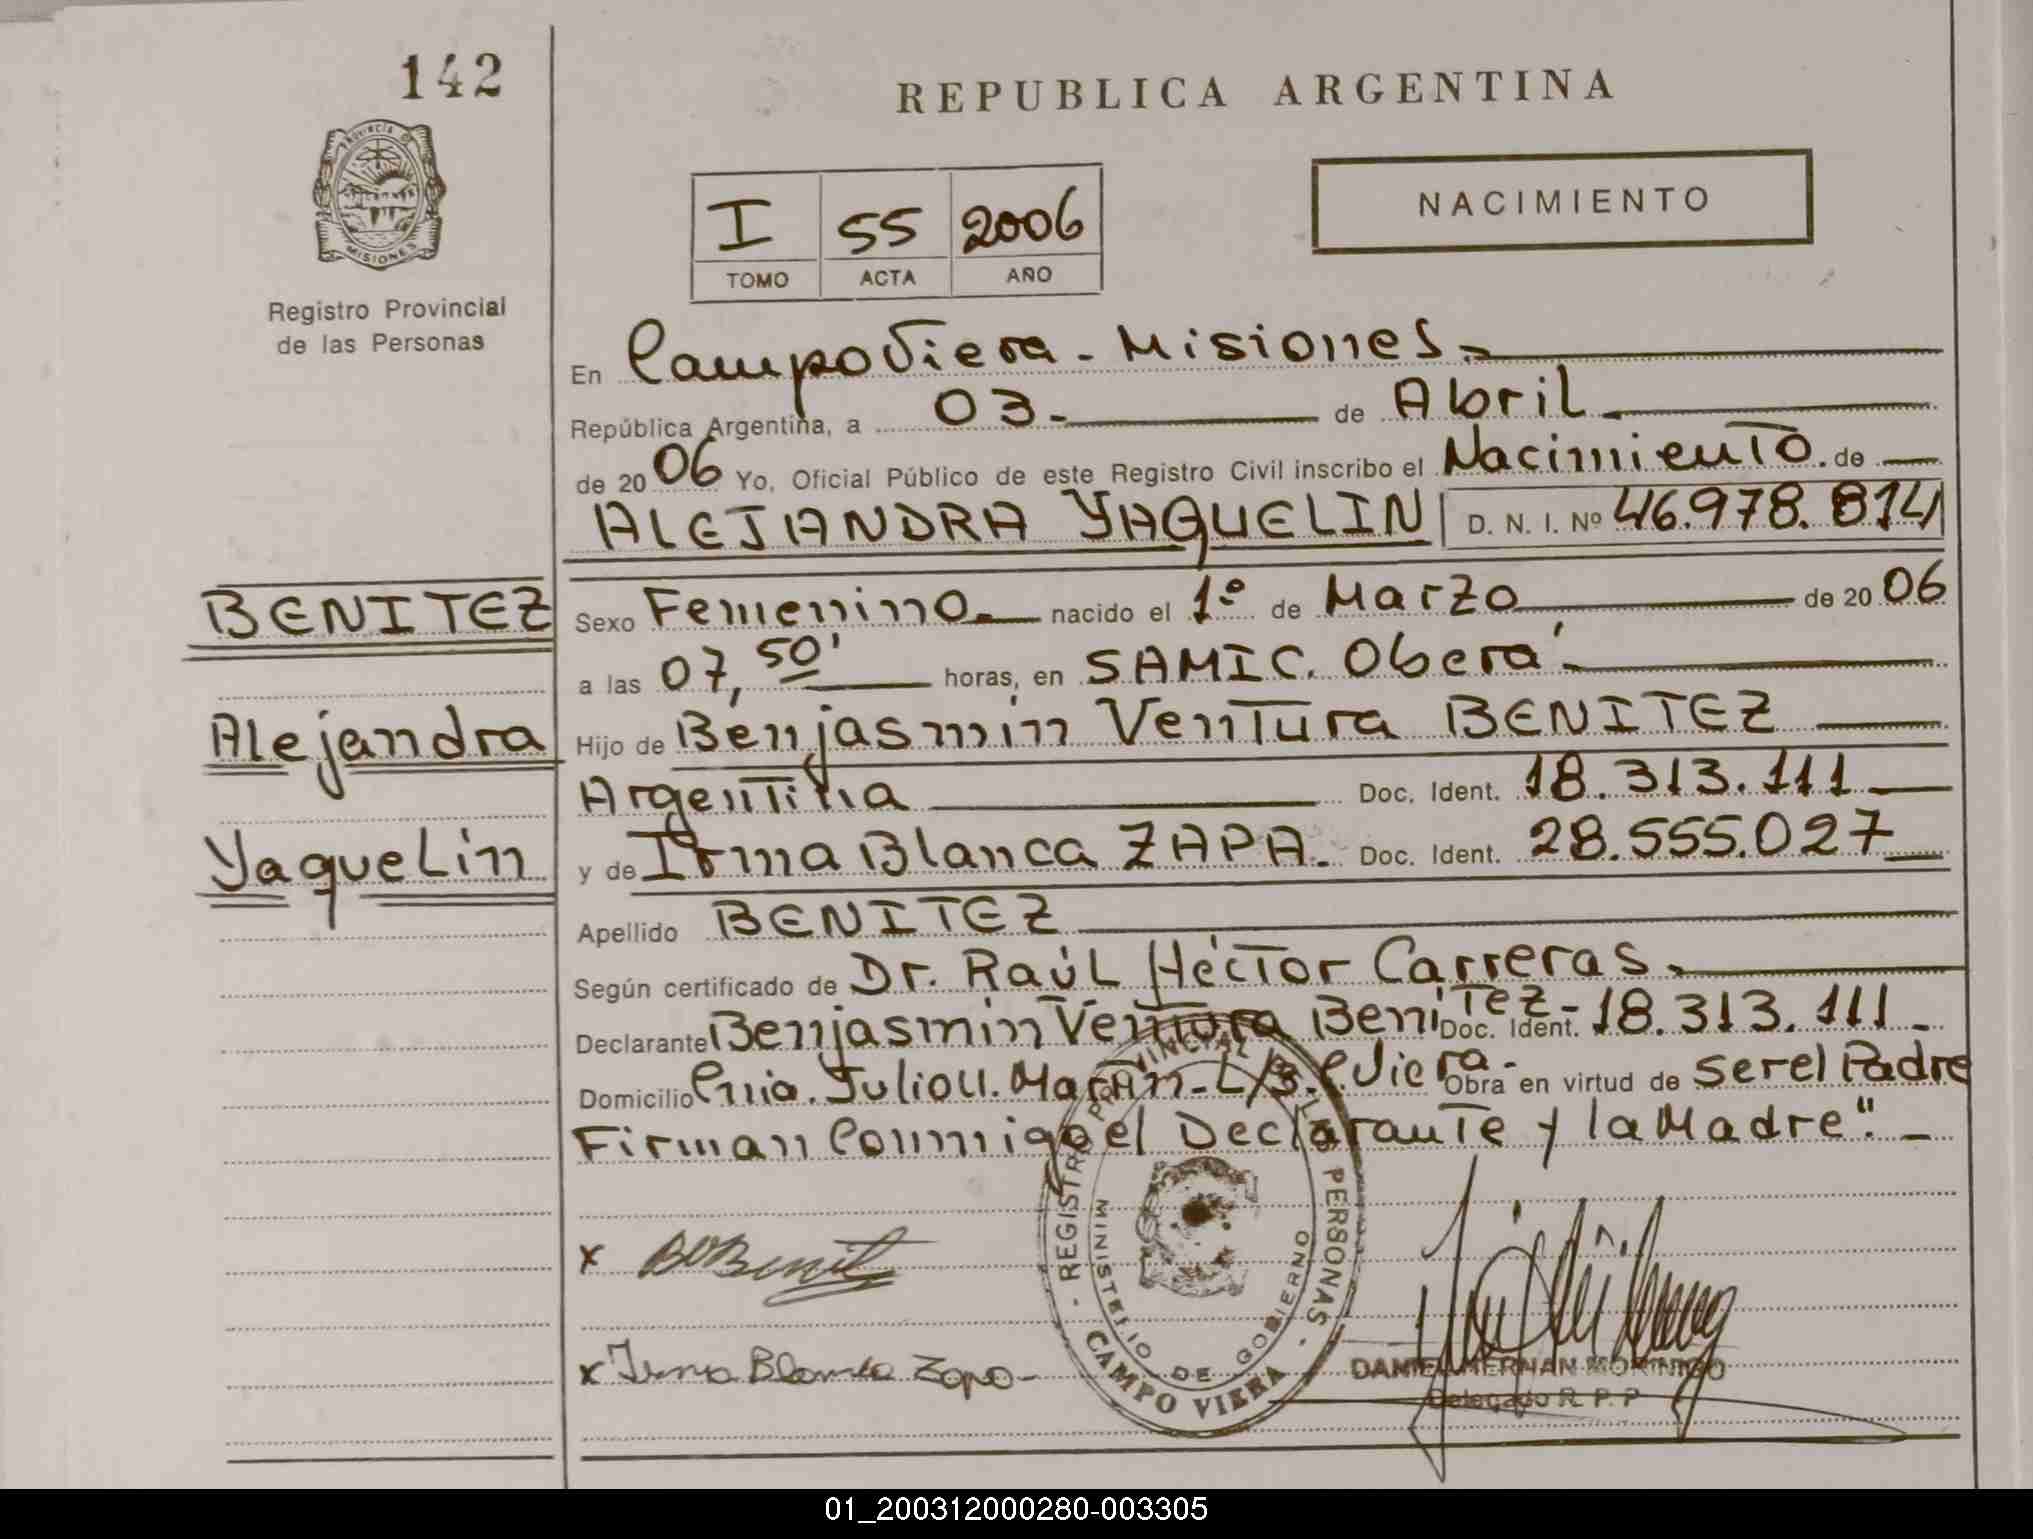 142
REPUBLICA ARGENTINA
PROVINCIA DE
MISIONES
Registro Provincial
de las Personas
I 55 2006
TOMO ACTA AÑO
NACIMIENTO
En Campo Viera - Misiones.-
República Argentina, a 03.- de Abril.-
de 2006 Yo, Oficial Público de este Registro Civil inscribo el Nacimiento.de
ALEJANDRA YAQUELIN D. N. I. Nº 46.978.814
BENITEZ
Sexo Femenino.- nacido el 1º de Marzo de 2006
a las 07,50' horas, en SAMIC. Oberá.-
Alejandra
Hijo de Benjasmin Ventura BENITEZ
Argentina Doc. Ident. 18.313.111
Yaquelin
y de Irma Blanca ZAPA.- Doc. Ident. 28.555.027
Apellido BENITEZ
Según certificado de Dr. Raúl Héctor Carreras.-
Declarante Benjasmin Ventura Benitez- Doc. Ident. 18.313.111 -
Domicilio Julio U. Martin- L/3. C. Viera- Obra en virtud de ser el Padre
Firman Conmigo el Declarante y la Madre".-
x Benit
x Irma Blanca Zapa-
REGISTRO PROVINCIAL DE LAS PERSONAS
MINISTERIO DE GOBIERNO
CAMPO VIERA
DANIEL HERNAN MORINIGO
Delegado R. P. P
01_200312000280-003305